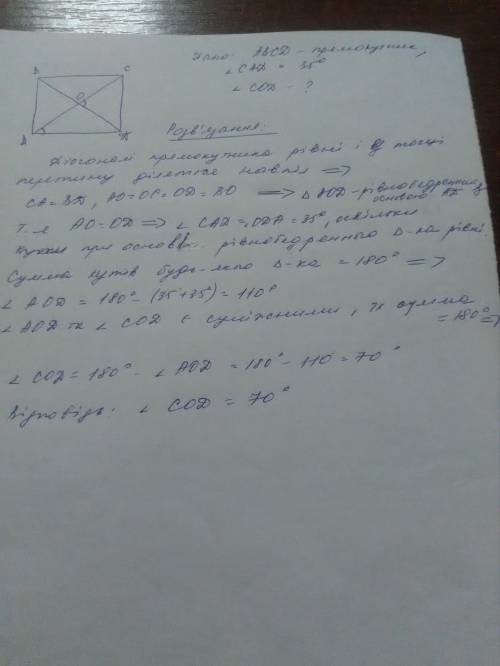 Дано: ABCD - прямокутник,
∠CAD = 35°
∠COD - ?
B C
O
A
Розв'язання:
Діагоналі прямокутника рівні і в точці
перетину діляться навпіл =>
CA=BD, AO=OC=OD=BO => △AOD-рівнобедренний з
основою AD
Т.я AO=OD => ∠CAD=∠ODA=35°, оскільки
кути при основі рівнобедренного △-ка рівні.
Сумма кутів будь-якого △-ка = 180° =>
∠AOD = 180° - (35+35) = 110°
∠AOD та ∠COD є суміжними, їх сумма
= 180° =>
∠COD = 180° - ∠AOD = 180° - 110 = 70°
Відповідь: ∠COD = 70°